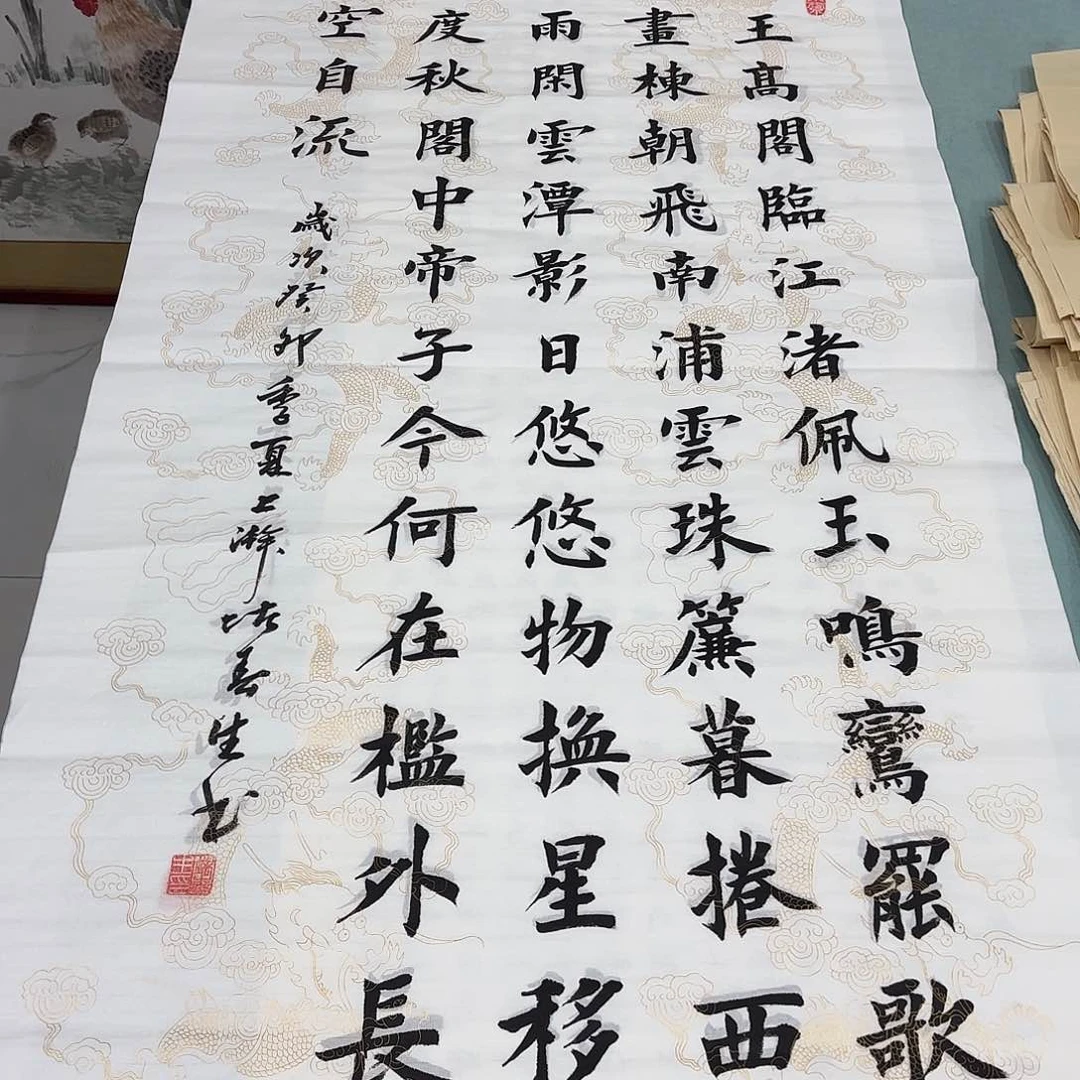 王髙閣臨江渚佩玉鳴鸞罷歌
畫棟朝飛南浦雲珠簾暮捲西
雨閑雲潭影日悠悠物換星移
度秋閣中帝子今何在檻外長
空自流
歲次癸卯季夏上澣春生书